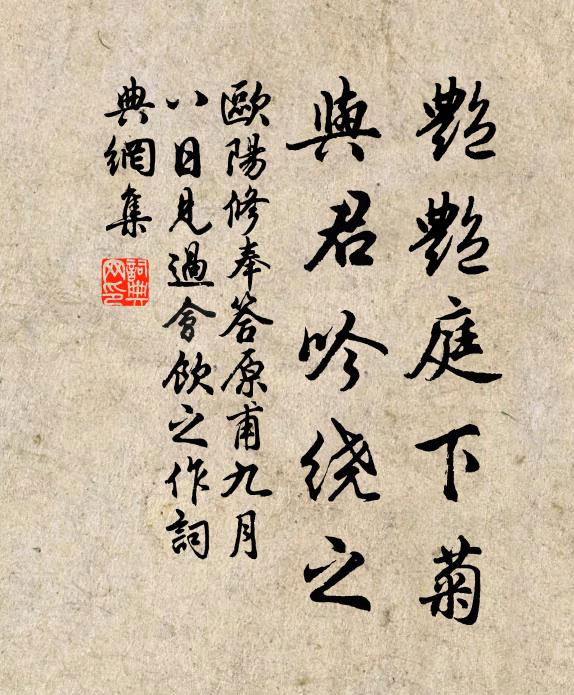 艷艷庭下菊
與君吟绕之
歐陽修奉答原甫九月
八日見過會飲之作詞
典網集
詞典
网印